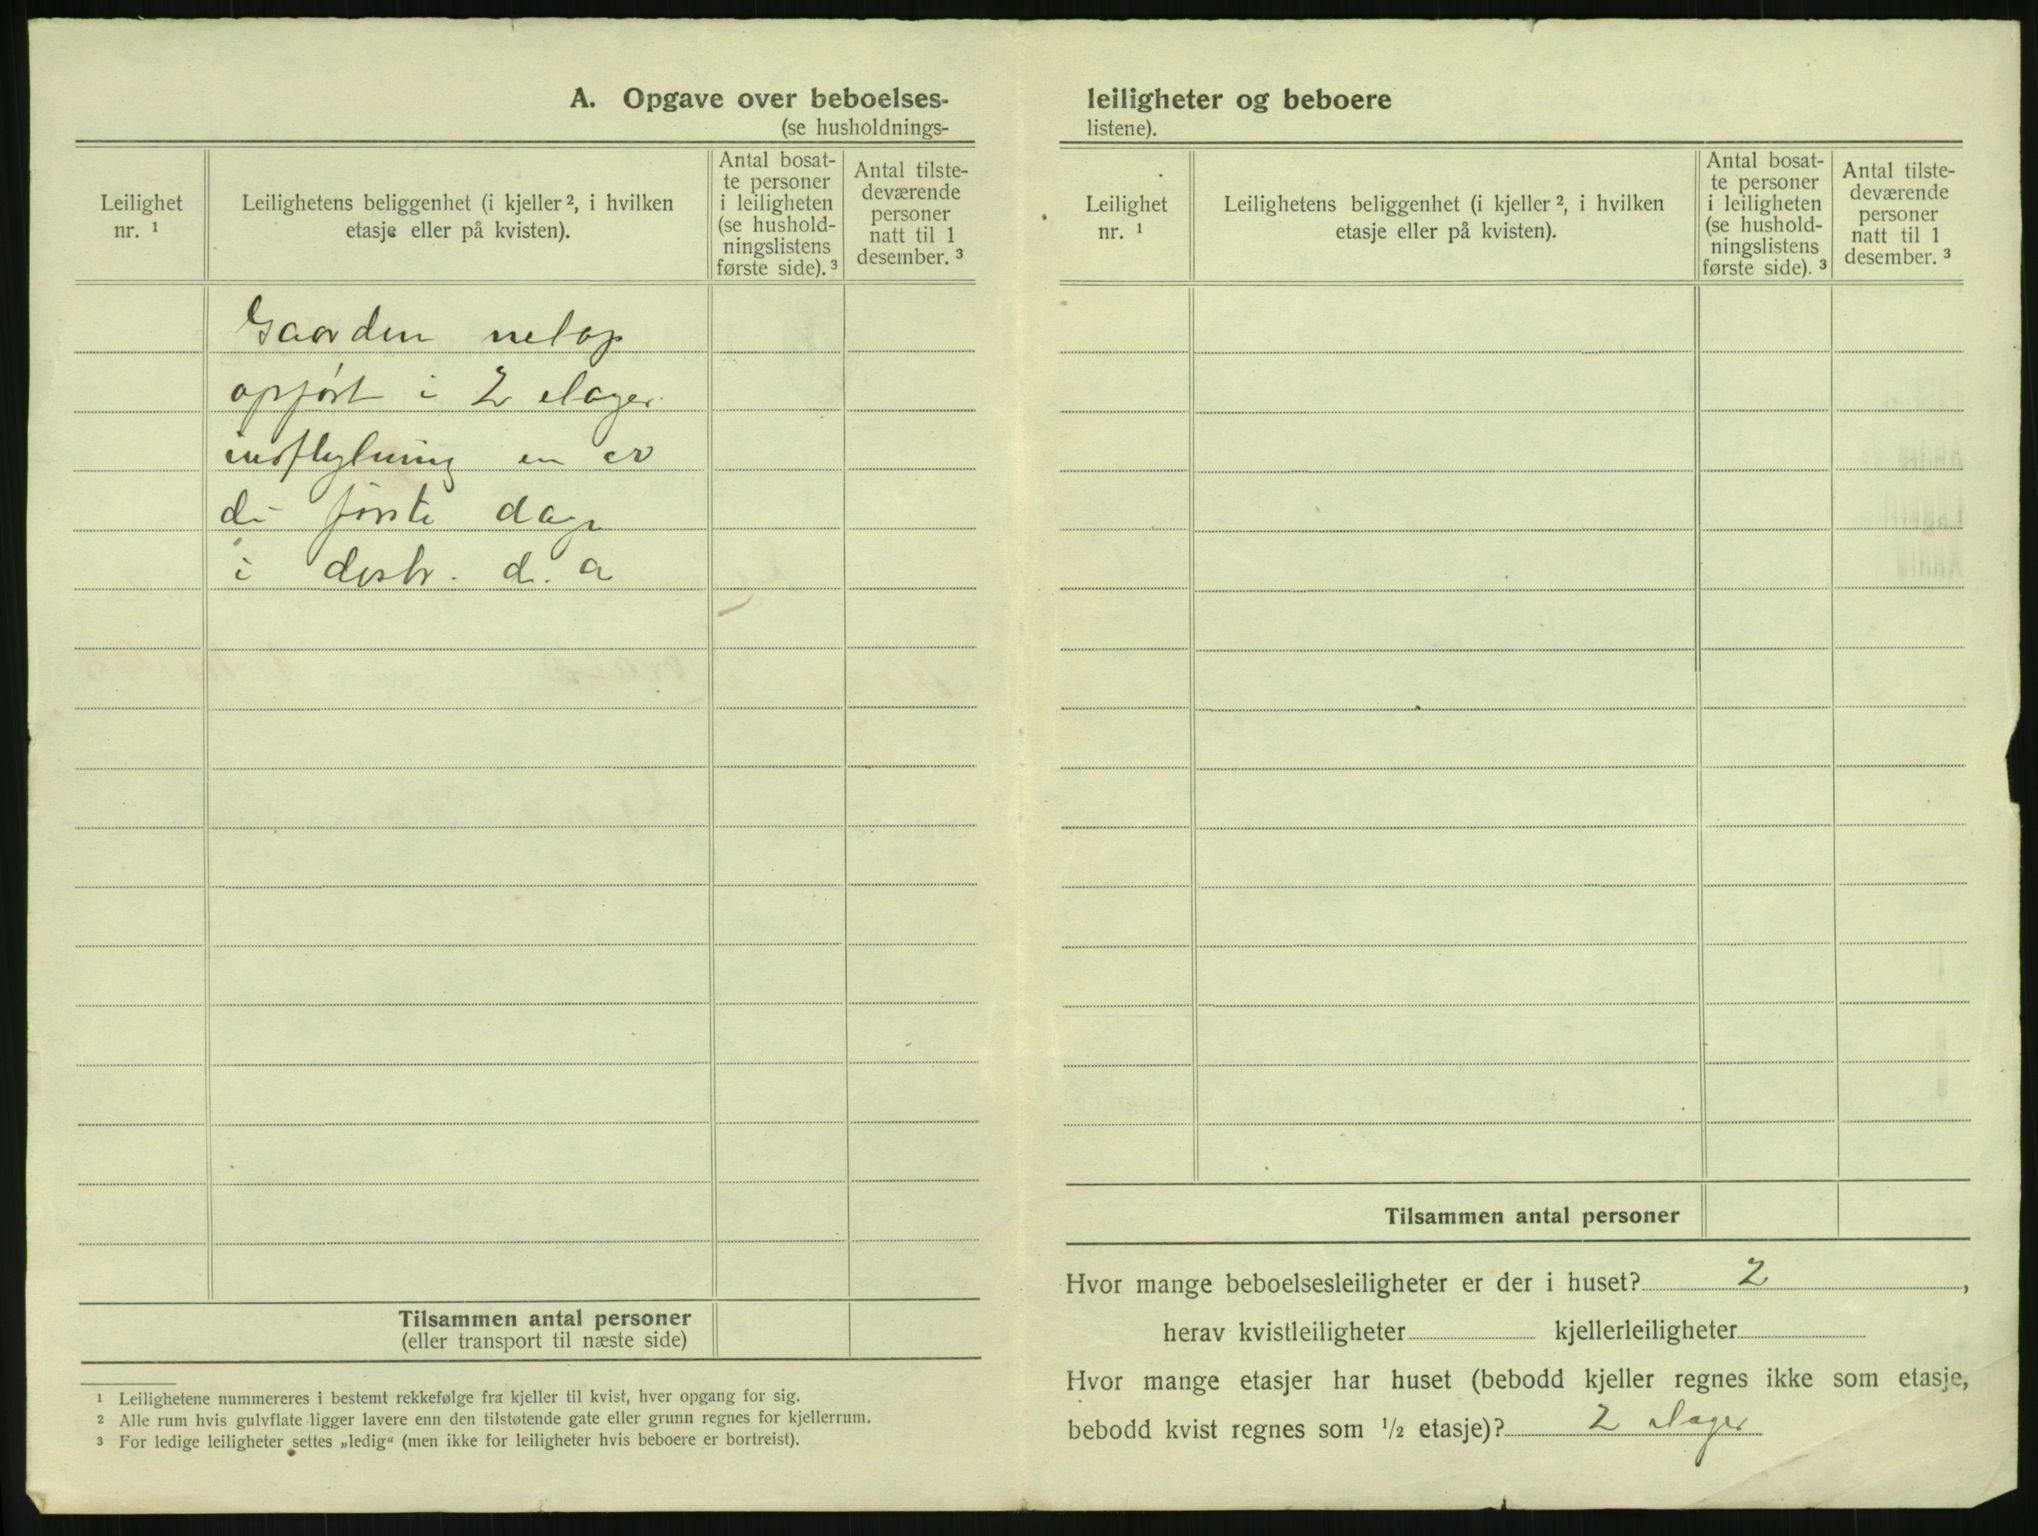 A. Opgave over beboelses-
(se husholdnings-
Leilighet
nr. ¹
Leilighetens beliggenhet (i kjeller ², i hvilken
etasje eller på kvisten).
Antal bosat-
te personer
i leiligheten
(se hushold-
ningslistens
første side). ³
Antal tilste-
deværende
personer
natt til 1
desember. ³
Gaarden netop
opført i 2 etager.
indflytning en er
di første dage
i desbr. d. a
Tilsammen antal personer
(eller transport til næste side)
¹ Leilighetene nummereres i bestemt rekkefølge fra kjeller til kvist, hver opgang for sig.
² Alle rum hvis gulvflate ligger lavere enn den tilstøtende gate eller grunn regnes for kjellerrum.
³ For ledige leiligheter settes „ledig“ (men ikke for leiligheter hvis beboere er bortreist).
leiligheter og beboere
listene).
Leilighet
nr. ¹
Leilighetens beliggenhet (i kjeller ², i hvilken
etasje eller på kvisten).
Antal bosat-
te personer
i leiligheten
(se hushold-
ningslistens
første side). ³
Antal tilste-
deværende
personer
natt til 1
desember. ³
Tilsammen antal personer
Hvor mange beboelsesleiligheter er der i huset? 2,
herav kvistleiligheter kjellerleiligheter
Hvor mange etasjer har huset (bebodd kjeller regnes ikke som etasje,
bebodd kvist regnes som ½ etasje)? 2 etager